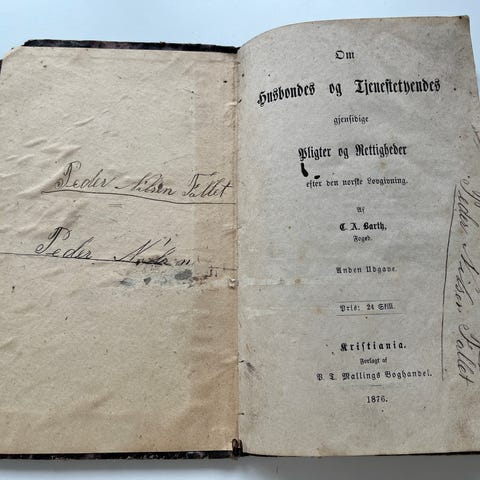 Peder Nilsen Fallet
Peder
Om
Husbondes og Tjenestetyendes
gjensidige
Pligter og Rettigheder
efter den norske Lovgivning.
Af
C. A. Barth,
Foged.
Anden Udgave.
Pris: 24 Skill.
Kristiania.
Forlagt af
P. T. Mallings Boghandel.
1876.
Peder Nilsen Fallet